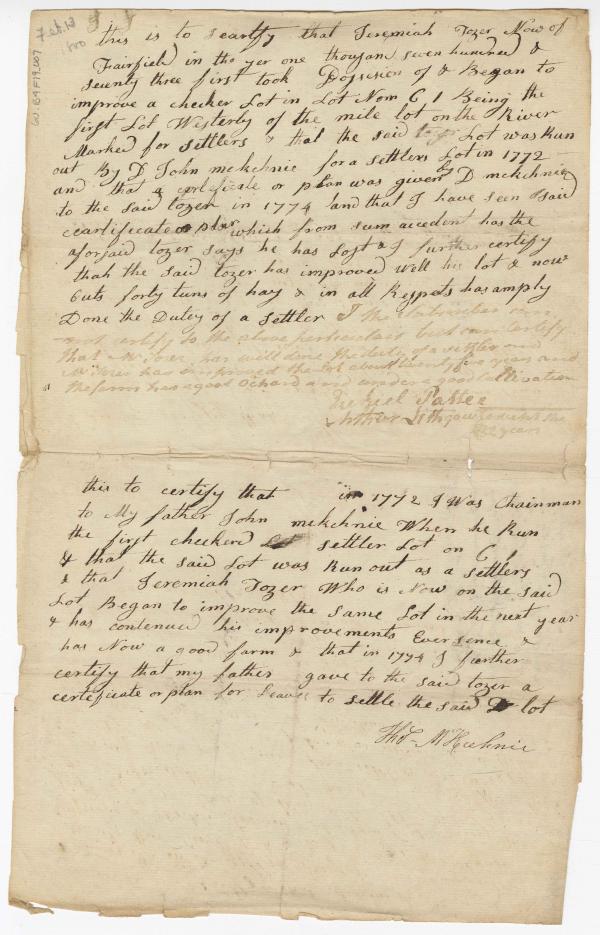 this is to seartify that Jeremiah Tozer Now of
Fairfield in the yer one thousan seven hundred &
seventy three first took Possesion of & Began to
improve a checker Lot in Lot Nom C 1 Being the
first Lot Westerly of the mile lot on the River
Marked for settlers & that the said tozer Lot was Run
out By D John mckchnie for a settlers Lot in 1772
and that a certificate or plan was given by D mckchnie
to the said tozer in 1774 and that I have seen said
ceartificate or plan which from sum accedent has the
aforsaid tozer says he has Lost & I further certify
thah the said tozer has improved well his lot & now
Cuts forty tuns of hay & in all Respets has amply
Done the Dutey of a settler I the subscriber can
not certify to the above perticulars but can certify
that Mr Tozer has well done the duty of a settler and
Mr Tozer has improved the lot about twenty five years and
the farm has a good Ochard and under a good cultivation
Ezekiel Pattee
Arthur Lithgow
years
this to certify that in 1772 I Was Chainman
to My father John mckchnie When he Run
the first checkered settler Lot on C 1
& that the said Lot was Run out as a settlers
& that Jeremiah Tozer Who is Now on the said
Lot Began to improve the same Lot in the next year
& has contenued his improvements Eversence &
has Now a good farm & that in 1774 I further
certify that my father gave to the said tozer a
certificate or plan for Leave to settle the said lot
Thos McKechnie
Feb. 13
1810